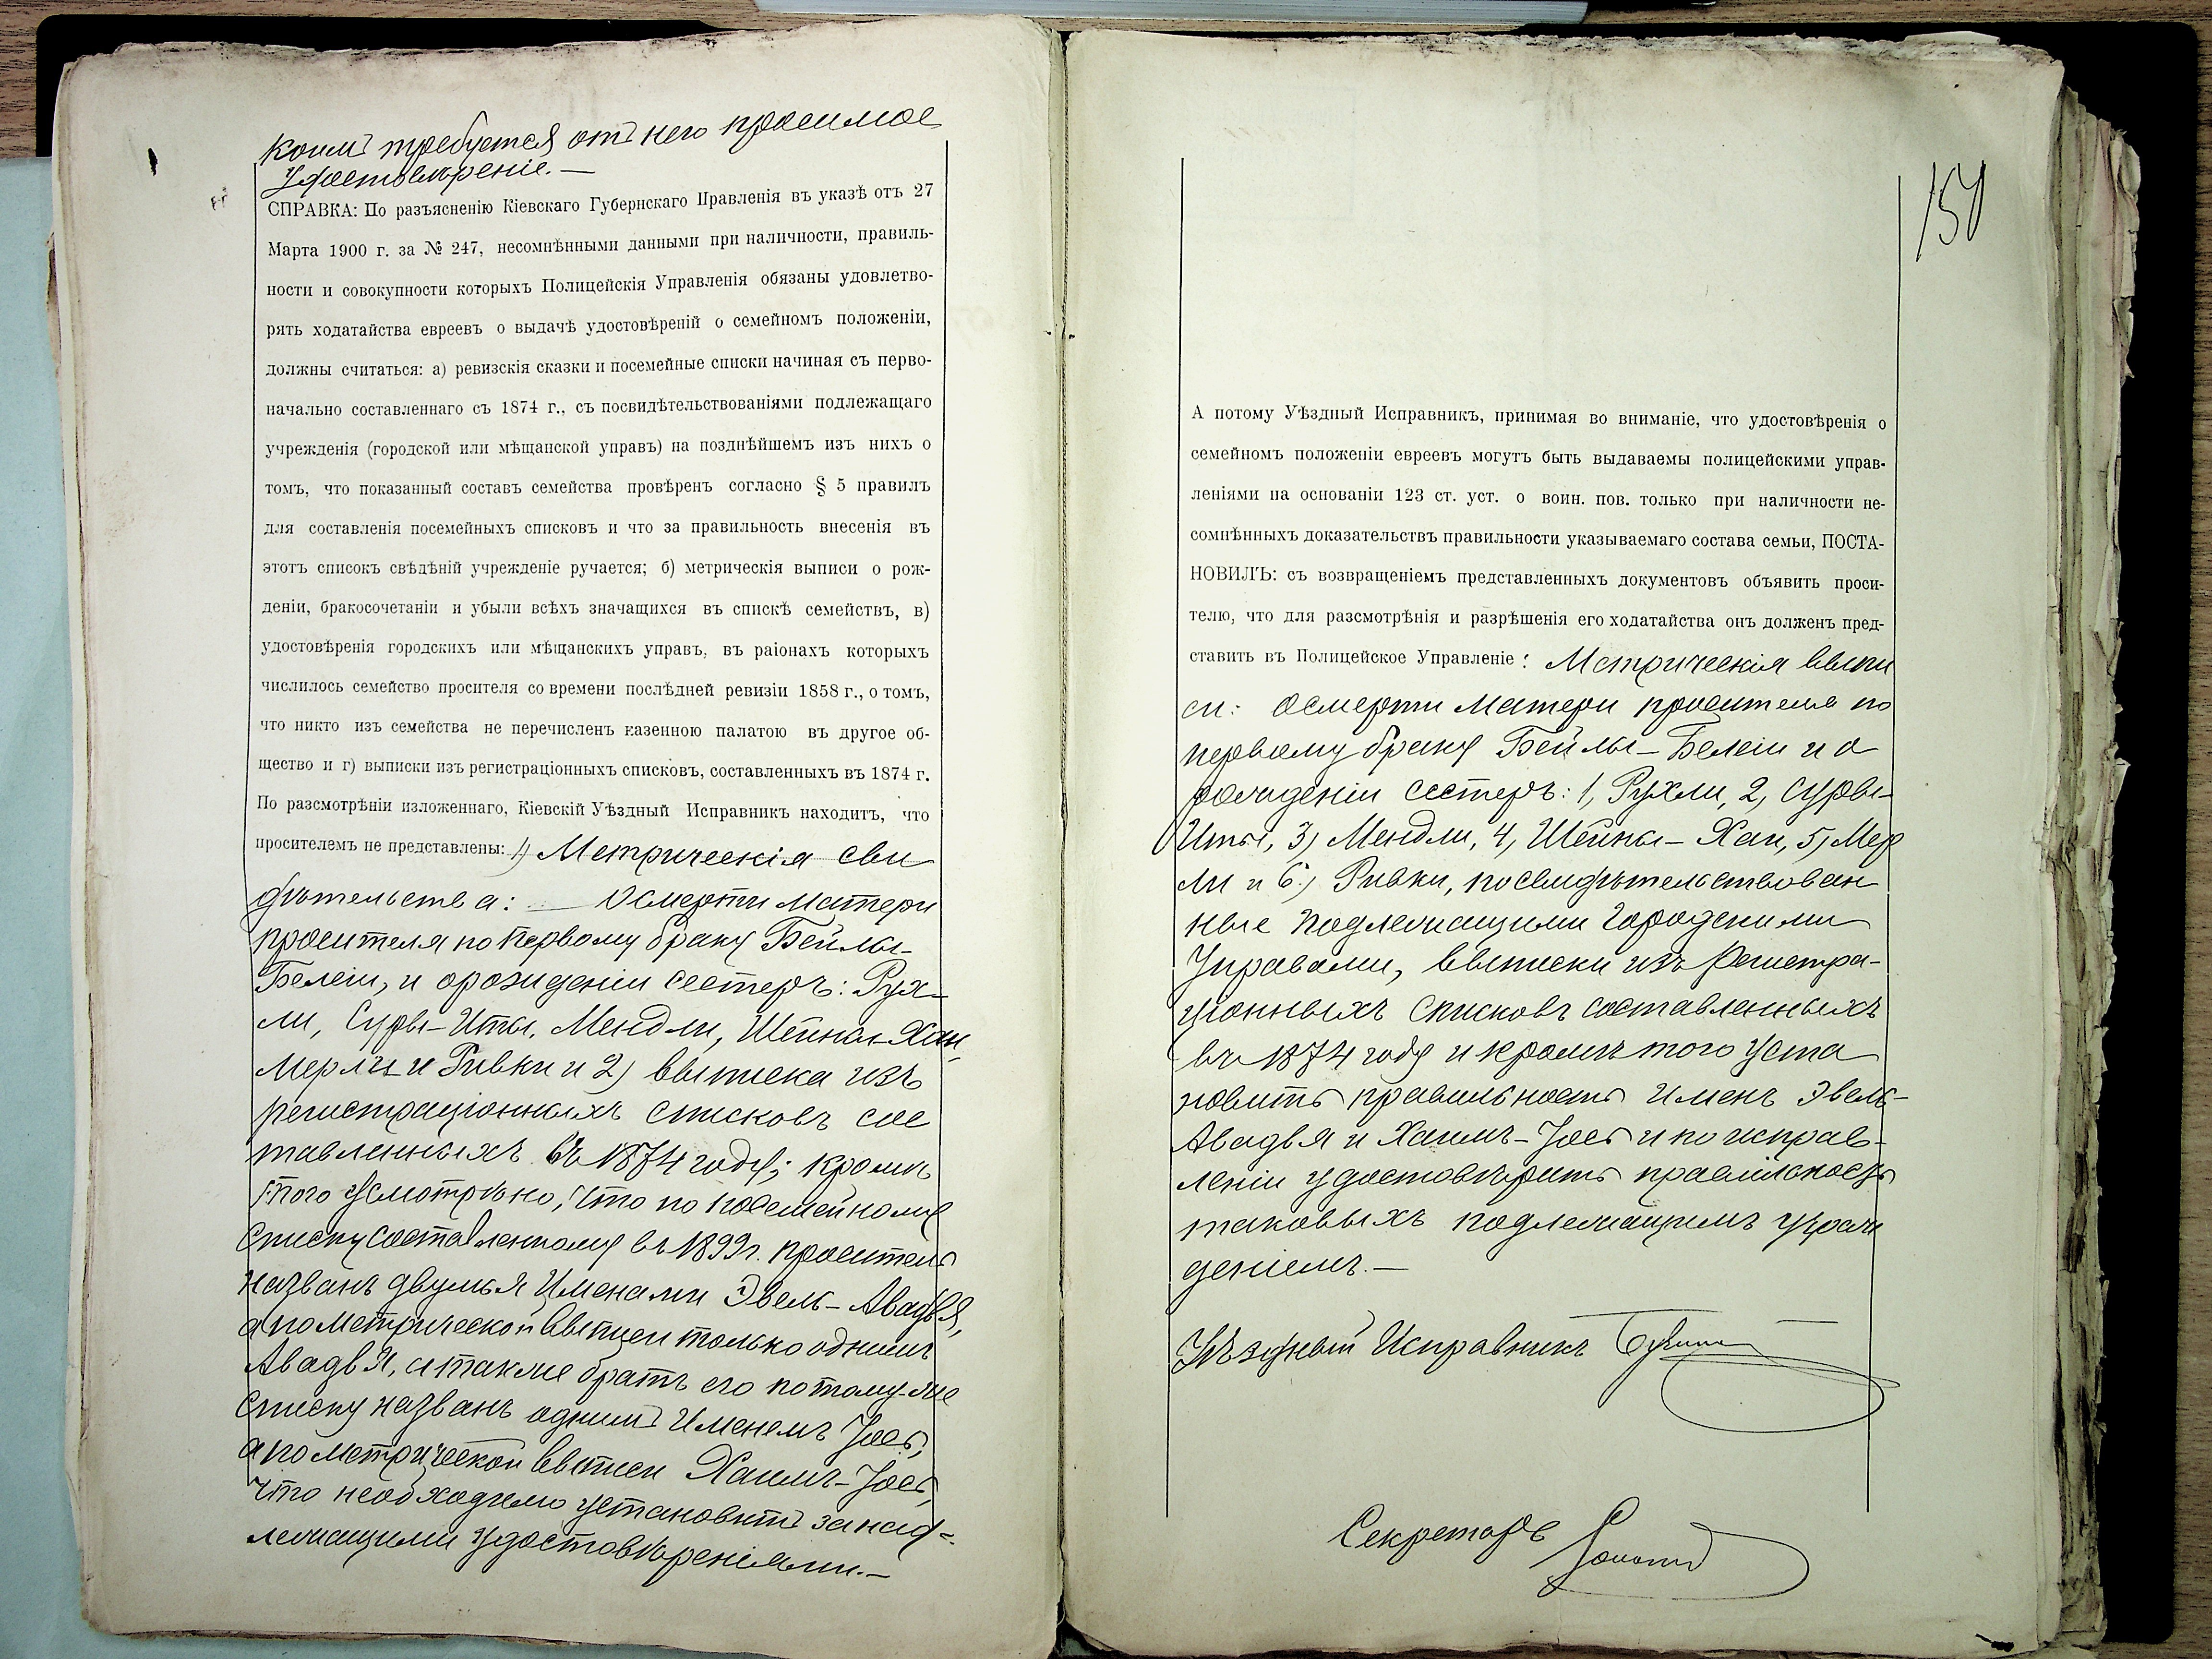 коимъ требуется отъ него просимое
удостовѣреніе. —
СПРАВКА: По разъясненію Кіевскаго Губернскаго Правленія въ указѣ отъ 27
Марта 1900 г. за № 247, несомнѣнными данными при наличности, правиль-
ности и совокупности которыхъ Полицейскія Управленія обязаны удовлетво-
рять ходатайства евреевъ о выдачѣ удостовѣреній о семейномъ положеніи,
должны считаться: а) ревизскія сказки и посемейные списки начиная съ перво-
начально составленнаго съ 1874 г., съ посвидѣтельствованіями подлежащаго
учрежденія (городской или мѣщанской управъ) на позднѣйшемъ изъ нихъ о
томъ, что показанный составъ семейства провѣренъ согласно § 5 правилъ
для составленія посемейныхъ списковъ и что за правильность внесенія въ
этотъ списокъ свѣдѣній учрежденіе ручается; б) метрическія выписи о рож-
деніи, бракосочетаніи и убыли всѣхъ значащихся въ спискѣ семействъ, в)
удостовѣренія городскихъ или мѣщанскихъ управъ, въ раіонахъ которыхъ
числилось семейство просителя со времени послѣдней ревизіи 1858 г., о томъ,
что никто изъ семейства не перечисленъ казенною палатою въ другое об-
щество и г) выписки изъ регистраціонныхъ списковъ, составленныхъ въ 1874 г.
По разсмотрѣніи изложеннаго, Кіевскій Уѣздный Исправникъ находитъ, что
просителемъ не представлены: 1) Метрическія сви
дѣтельства: — о смерти матери
просителя по первому браку Бейлы-
Белеіи, и о рожденіи сестеръ: Рух-
ли, Суры-Иты, Мендли, Шейны-Хаи,
Мерлы и Ривки и 2) выписка изъ
регистраціонныхъ списковъ сос
тавленныхъ въ 1874 году; кромѣ
того усмотрѣно, что по посемейному
списку составленному въ 1899 г. проситель
названъ двумя именами Эвель-Авадья,
а по метрической выписи только однимъ
Авадья, а также братъ его по тому-же
списку названъ однимъ именемъ Іосъ,
а по метрической выписи Хаимъ-Іосъ,
что необходимо установить за над-
лежащими удостовѣреніями. —
150
А потому Уѣздный Исправникъ, принимая во вниманіе, что удостовѣренія о
семейномъ положеніи евреевъ могутъ быть выдаваемы полицейскими управ-
леніями на основаніи 123 ст. уст. о воин. пов. только при наличности не-
сомнѣнныхъ доказательствъ правильности указываемаго состава семьи, ПОСТА-
НОВИЛЪ: съ возвращеніемъ представленныхъ документовъ объявить проси-
телю, что для разсмотрѣнія и разрѣшенія его ходатайства онъ долженъ пред-
ставить въ Полицейское Управленіе: Метрическія выпи
си: о смерти матери просителя по
первому браку Бейлы-Белеіи и о
рожденіи сестеръ: 1, Рухли, 2, Суры-
Иты, 3) Мендли, 4, Шейны-Хаи, 5) Мер
ли и 6.) Ривки, посвидѣтельствован
ные подлежащими городскими
Управами, выписки изъ регистра-
ціонныхъ списковъ составленныхъ
въ 1874 году и кромѣ того уста
новить правильность именъ Эвель-
Авадья и Хаимъ-Іосъ и по исправ-
леніи удостовѣрить правильность
таковыхъ подлежащимъ учреж
деніемъ. —
Уѣздный Исправникъ
Секретарь